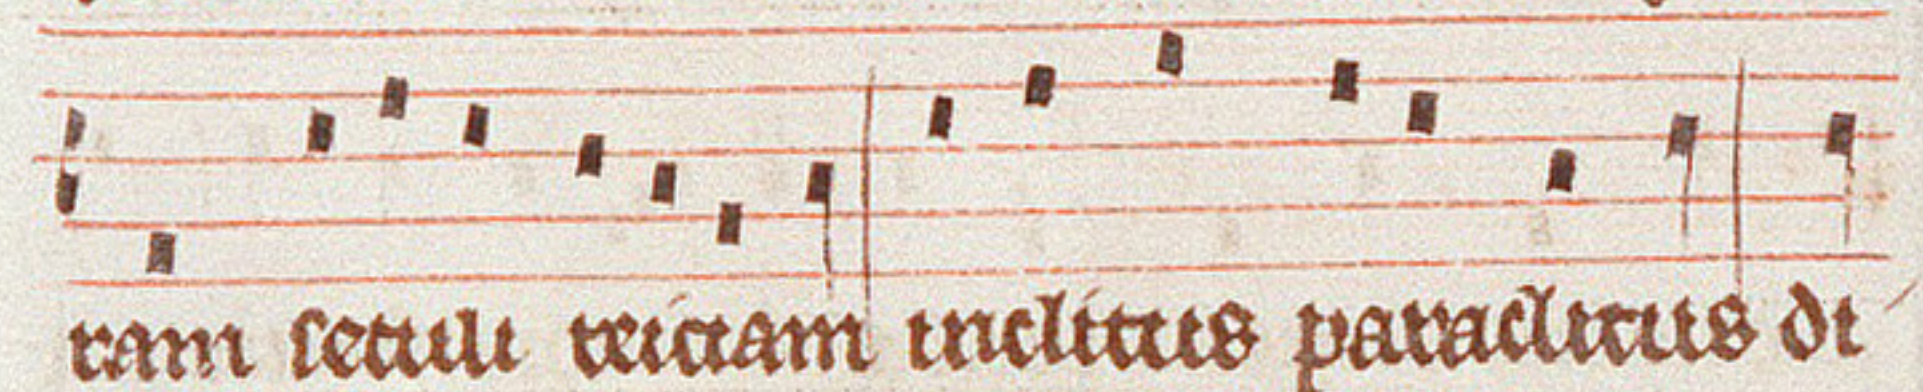 ram seculi tristiam inclitus paraclitus di